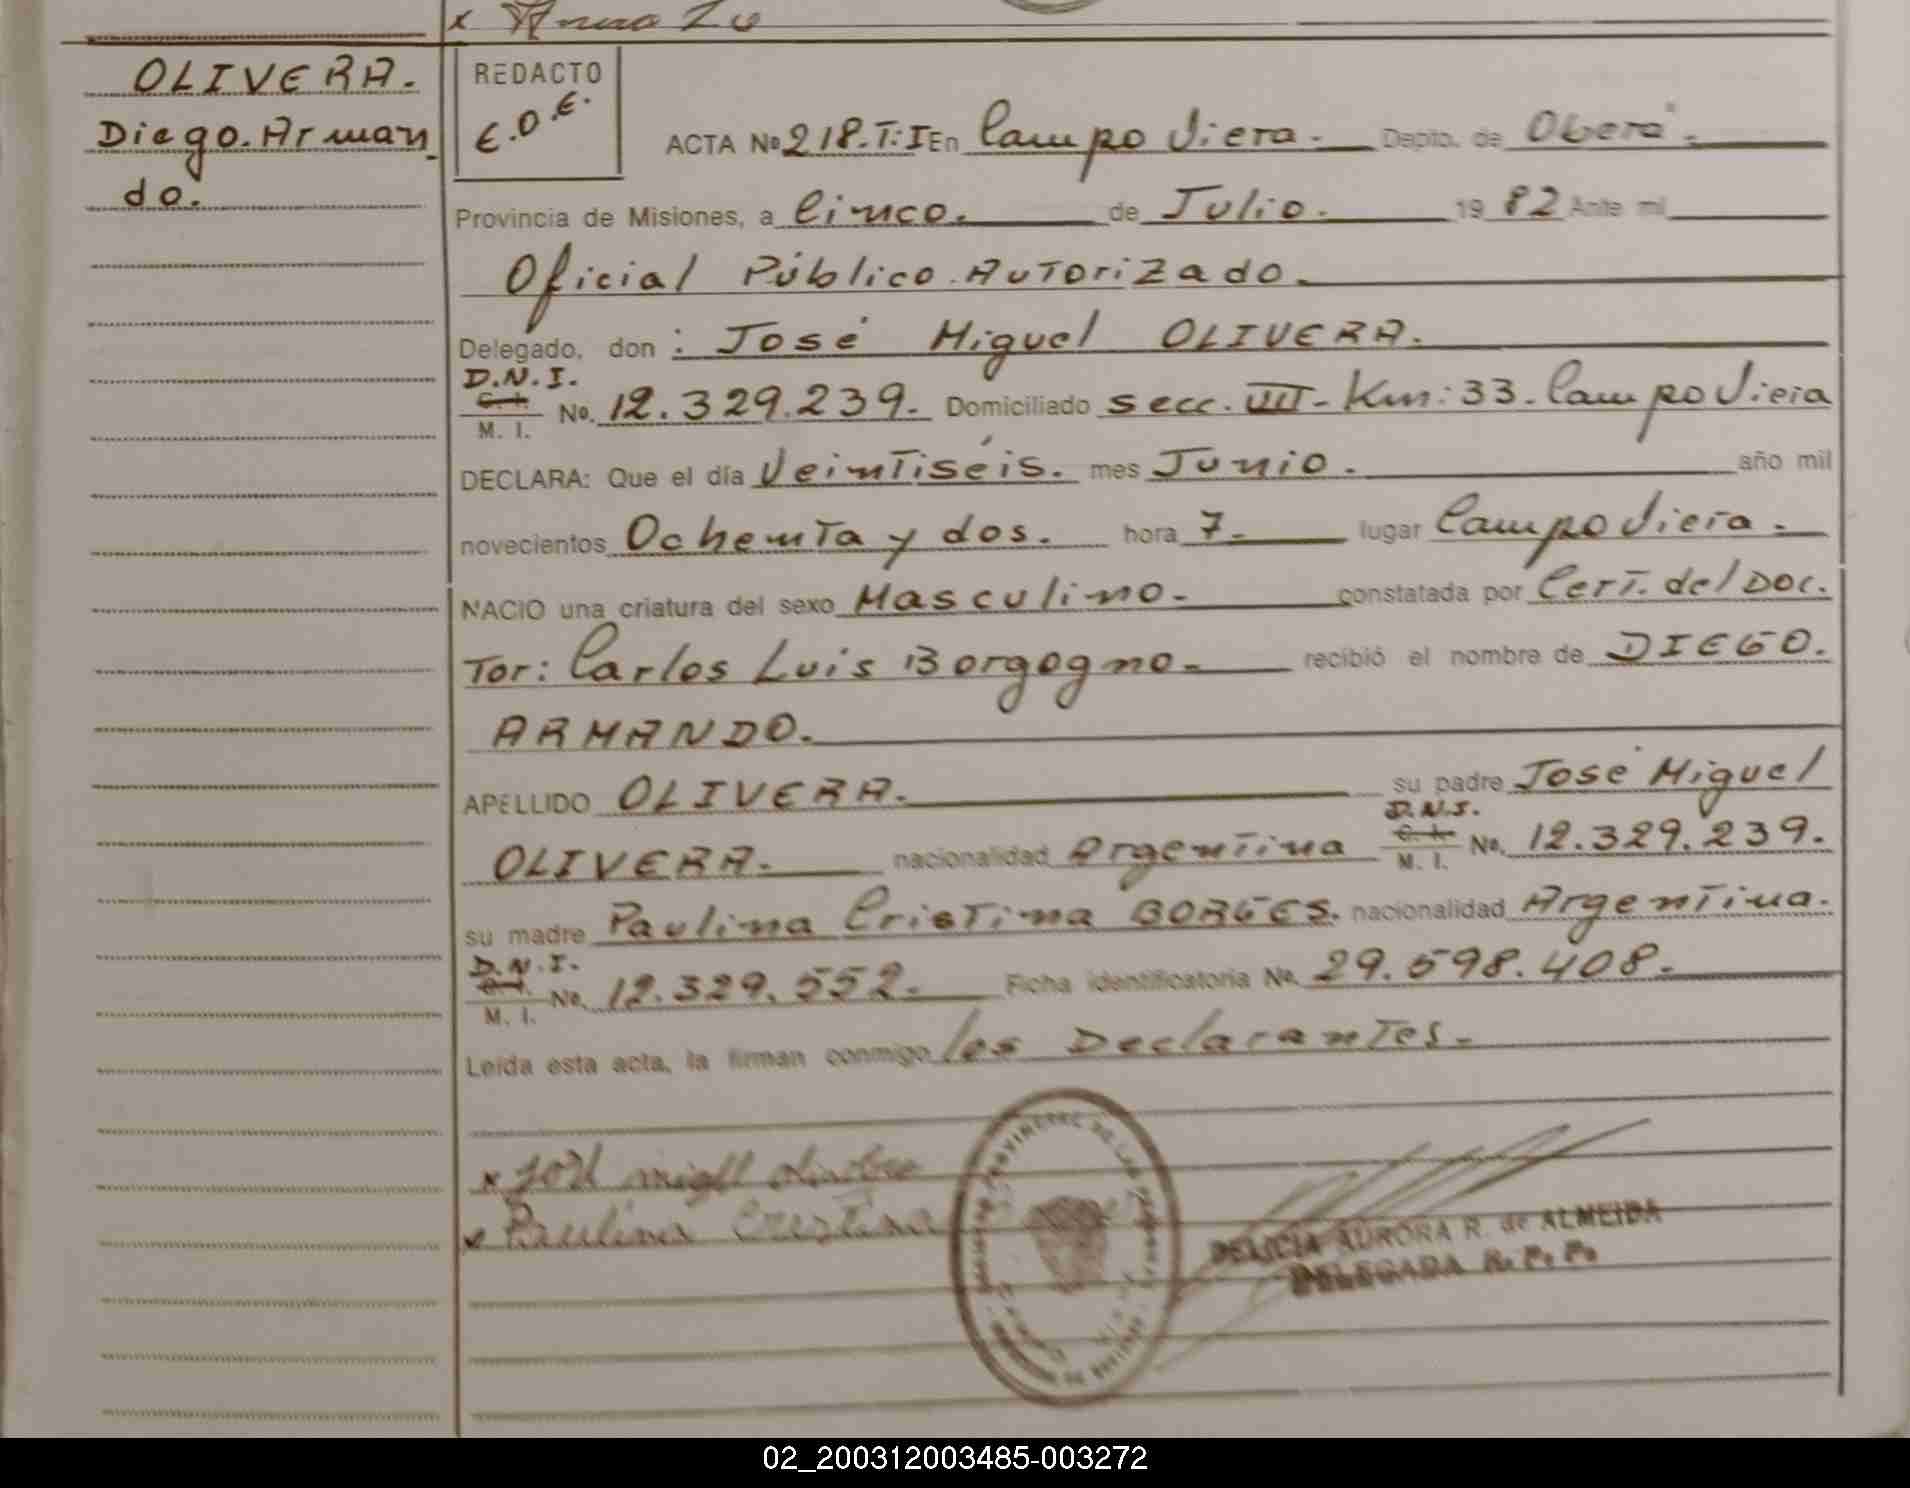 OLIVERA.
Diego. Arman
do.
REDACTO
E.O.E.
ACTA No 218.T:I En Campo Viera.- Depto. de Oberá.-
Provincia de Misiones, a Cinco. de Julio. 19 82 Ante mi
Oficial Público. Autorizado.
Delegado, don : José Miguel OLIVERA.
D.N.I.
C. I.
M. I. No. 12.329.239. Domiciliado secc. VIII- Km: 33. Campo Viera
DECLARA: Que el día Veintiséis. mes Junio. año mil
novecientos Ochenta y dos. hora 7. lugar Campo Viera.-
NACIO una criatura del sexo Masculino.- constatada por Cert. del Doc.
Tor: Carlos Luis Borgogno.- recibió el nombre de DIEGO.
ARMANDO.
APELLIDO OLIVERA. su padre José Miguel
OLIVERA. nacionalidad Argentina D.N.I.
C. I.
M. I. No. 12.329.239.
su madre Paulina Cristina BORGES. nacionalidad Argentina.
D.N.I.
C. I.
M. I. No. 12.329.552. Ficha identificatoria No. 29.598.408.-
Leída esta acta, la firman conmigo los Declarantes.-
Paulina Cristina
DELICIA AURORA R. de ALMEIDA
DELEGADA R. P. P.
02_200312003485-003272